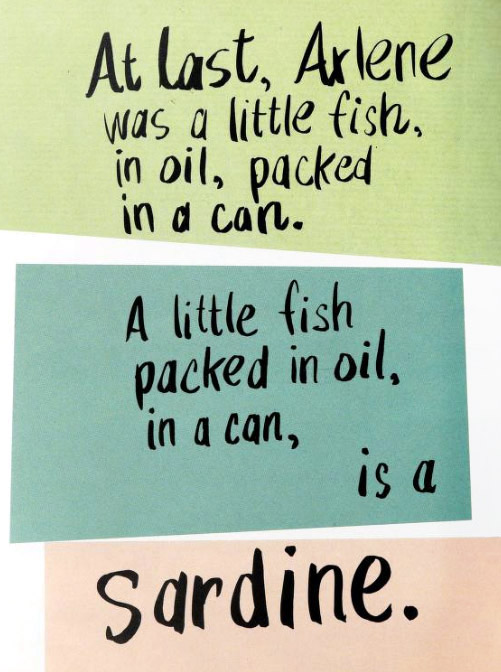 At last, Arlene
was a little fish,
in oil, packed
in a can.
A little fish
packed in oil,
in a can,
is a
Sardine.